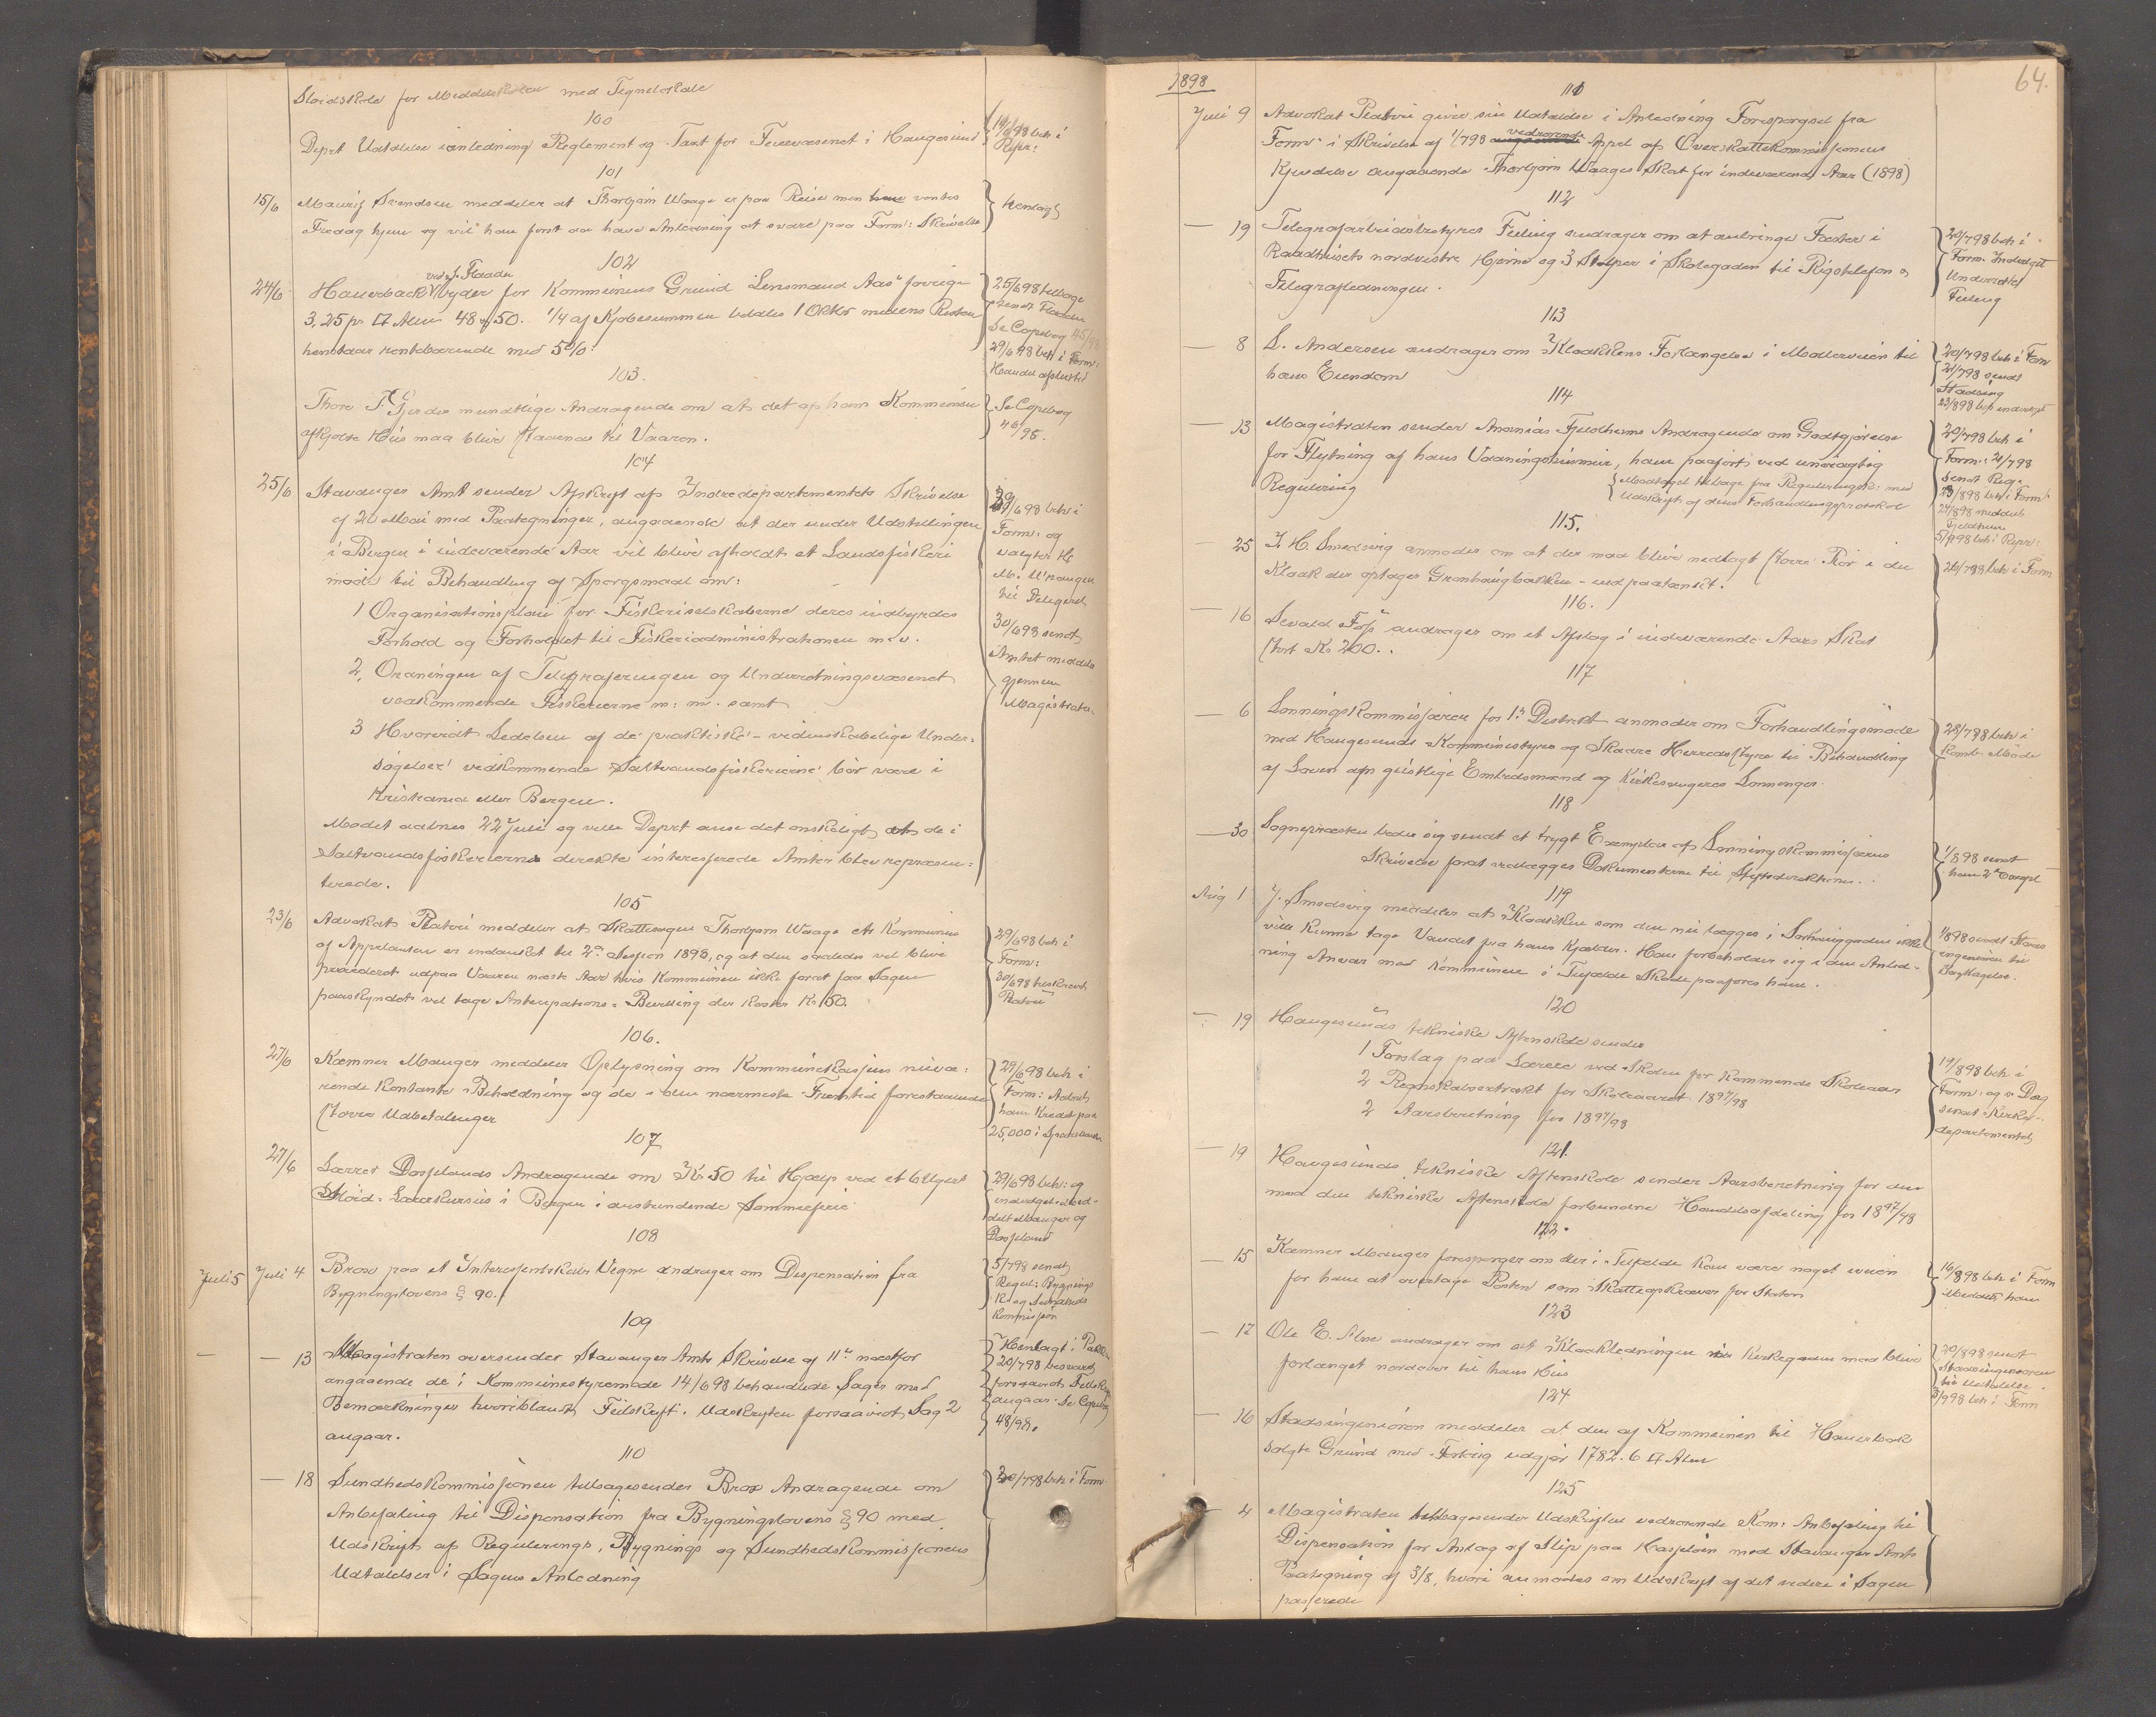 Sløidskole for Middelskolen med Tegneskole
100
Deprt Udtalelse i anledning Reglement og Taxt for Feievæsenet i Haugesund
14/6 98 beh i
Repr:
101
15/6 Mauritz Svendsen meddeler at Thorbjørn Waage er paa Reise men ventes
Fredag hjem og vil han først da have Anledning at svare paa Form: Skrivelse
henlagt
102
ved J. Flaade
24/6 Hauerback byder for Kommunens Grund Lensmand Aas forrige
3,25 pr □ Alen 48 og 50. 1/4 af Kjøbesummen betales 1 Oktbr medens Resten
henstaar rentebærende med 5%.
25/6 98 tilbage
sendt Flaade
Se Copibog 45/98
29/6 98 beh i Form:
Handel afsluttet
103.
Thore T. Gjerdes mundtlige Andragende om at det af ham Kommunen
afkjøbte Hus maa blive staaende til Vaaren.
Se Copibog
46/98.
104
25/6 Stavanger Amt sender Afskrift af Indredepartementets Skrivelse
af 21 Mai med Paategninger, angaaende at der under Udstillingen
i Bergen i indeværende Aar vil blive afholdt et Landsfiskeri
møde til Behandling af Spørgsmaal om:
1 Organisationsplan for Fiskeriselskaberne deres indbyrdes
Forhold og Forholdet til Fiskeriadministrationen m.v.
2. Ordningen af Telegraferingen og Underretningsvæsenet
vedkommende Fiskerierne m: m. samt
3 Hvorvidt Ledelsen af de praktiske-videnskabelige Under:
søgelser vedkommende Saltvandsfiskerierne bør være i
Kristiania eller Bergen.
Mødet aabnes 22 Juli og vilde Deprt anse det ønskeligt at de i
Saltvandsfiskerierne direkte interesserede Amter blev repræsen:
terede.
29/6 98 beh i
Form: og
valgtes Hr
M. Urangen
til Delegeret
30/6 98 sendt
Amtet meddelt
gjennem
Magistraten
105
23/6 Advokat Platou meddeler at Skattesagen Thorbjørn Waage ctr Kommunen
af Appelanten er indanket til 2den Session 1898, og at den saaledes vil blive
procederet udpaa Vaaren næste Aar hvis Kommunen ikke forut faa Sagen
paaskyndet vil tage Antecipations-Bevilling der koster Kr 50.
29/6 98 beh i
Form:
30/6 98 tilskrevet
Platou
106.
27/6 Kæmner Mauger meddeler Oplysning om Kommunekassens nuvæ:
rende kontante Beholdning og de i den nærmeste Fremtid forestaaende
større Udbetalinger
29/6 98 beh i
Form: Aabnet
ham Kredit paa
25,000 i Sparebanken
107
27/6 Lærer Dosplands Andragende om Kr 50 til Hjælp ved et billigere
Sløid-Lærekursus i Bergen i anstundende Sommerferie
29/6 98 beh: og
indvilget. Med-
delt Mauger og
Dospland
108
Juli 5 Juli 4 Brox paa et Interessentskabs Vegne andrager om Dispensation fra
Bygningslovens § 90.
5/7 98 sendt
Regul: Bygnings
K. og Sundheds
Kommission
109
— — 13 Magistraten oversender Stavanger Amts Skrivelse af 11te næstfør
angaaende de i Kommunestyremøde 14/6 98 behandlede Sager med
Bemærkninger hvoriblandt Feilskrift. Udskriften forsaavidt Sag 2
angaar.
Henlagt i Pakken
20/7 98 besvaret
forsaavidt Feilskrift
angaar. Se Copibog
48/98.
110
— 18 Sundhedskommissionen tilbagesender Brox Andragende om
Anbefaling til Dispensation fra Bygningslovens § 90 med
Udskrift af Regulerings, Bygnings og Sundhedskommissionens
Udtalelser i Sagens Anledning
20/7 98 beh i Form
1898
64.
111
Juli 9 Advokat Platou giver sin Udtalelse i Anledning Forespørgsel fra
Form: i Skrivelse af 1/7 98 vedrørende Appel af Overskattekommissionens
Kjendelse angaaende Thorbjørn Waages Skat for indeværende Aar (1898)
112
— 19 Telegrafarbeidsbestyrer Feiling andrager om at anbringe Fæster i
Raadhusets nordvestre Hjørne og 3 Stolper i Skolegaden til Rigstelefon og
Telegrafledningen.
20/7 98 beh i
Form. Indvilget
Underrettet
Feiling
113
— 8 S. Andersen andrager om Kloakkens Forlængelse i Møllerveien til
hans Eiendom
20/7 98 beh i Form
21/7 98 sendt
Stadsing
23/8 98 beh indvilget
114
— 13 Magistraten sender Ananias Fjeldheims Andragende om Godtgjørelse
for Flytning af hans Vaaningshusmur, ham paaført ved unøiagtig
Regulering
Modtaget tilbage fra Reguleringsk: med
Udskrift af dens Forhandlingsprotokol
20/7 98 beh i
Form: 21/7 98
sendt Reg.
23/8 98 beh i Form:
27/8 98 meddelt
Fjeldheim
5/9 98 beh i Repr:
115.
— 25 J. H. Smedsvig anmoder om at der maa blive nedlagt større Rør i den
Kloak der optager Grønhaugbækken - end paatænkt.
26/7 98 beh i Form
116.
— 16 Sevald Foss andrager om et Afslag i indeværende Aars Skat
stort Kr 200..
117
— 6 Lønningskommissæren for 1ste Distrikt anmoder om Forhandlingsmøde
med Haugesunds Kommunestyre og Skaare Herredsstyre til Behandling
af Loven om geistlige Embedsmænd og Kirkesangeres Lønninger.
28/7 98 beh i
Komb. Møde
118
— 30 Sognepræsten beder sig sendt et trygt Exemplar af Lønningskommissærens
Skrivelse forat vedlægges Dokumenterne til Stiftsdirektionen.
1/8 98 sendt
ham 2 Exempl
119
Aug 1 J. Smedsvig meddeler at Kloakken som den nu lægges i Sørhauggaden ikke
ville kunne tage Vandet fra hans Kjælder. Han forbeholder sig i den Anled-
ning Ansvar mod Kommunen i Tilfælde Skade paaføres ham.
1/8 98 sendt Stads
ingeniøren til
Iagttagelse.
120
— 19 Haugesunds tekniske Aftenskole sender
1 Forslag paa Lærere ved Skolen for kommende Skoleaar
2 Regnskabsextrakt for Skoleaaret 1897/98
2 Aarsberetning for 1897/98
19/8 98 beh i
Form: og s. Dag
sendt Kirke-
departementet
121.
— 19 Haugesunds tekniske Aftenskole sender Aarsberetning for den
med den tekniske Aftenskole forbundne Handelsafdeling for 1897/98
122.
— 15 Kæmner Mauger forespørger om der i Tilfælde kan være noget iveien
for ham at overtage Posten som Skatteopkræver for Staten
16/8 98 beh i Form
Meddelt ham
123
— 12 Ole E. Alne andrager om at Kloakledningen Kirkegaden maa blive
forlænget nordover til hans Hus
20/8 98 sendt
Stadsingeniøren
til Udtalelse.
3/9 98 beh i Form
124
— 16 Stadsingeniøren meddeler at den af Kommunen til Hauerback
solgte Grund med Fortoug udgjør 1782.6 □ Alen
125
— 4 Magistraten tilbagesender Udskriften vedrørende Kom: Anbefaling til
Dispensation for Anlæg af Slip paa Hasseløen med Stavanger Amts
Paategning af 3/8, hvori anmodes om Udskrift af det videre i Sagen
passerede